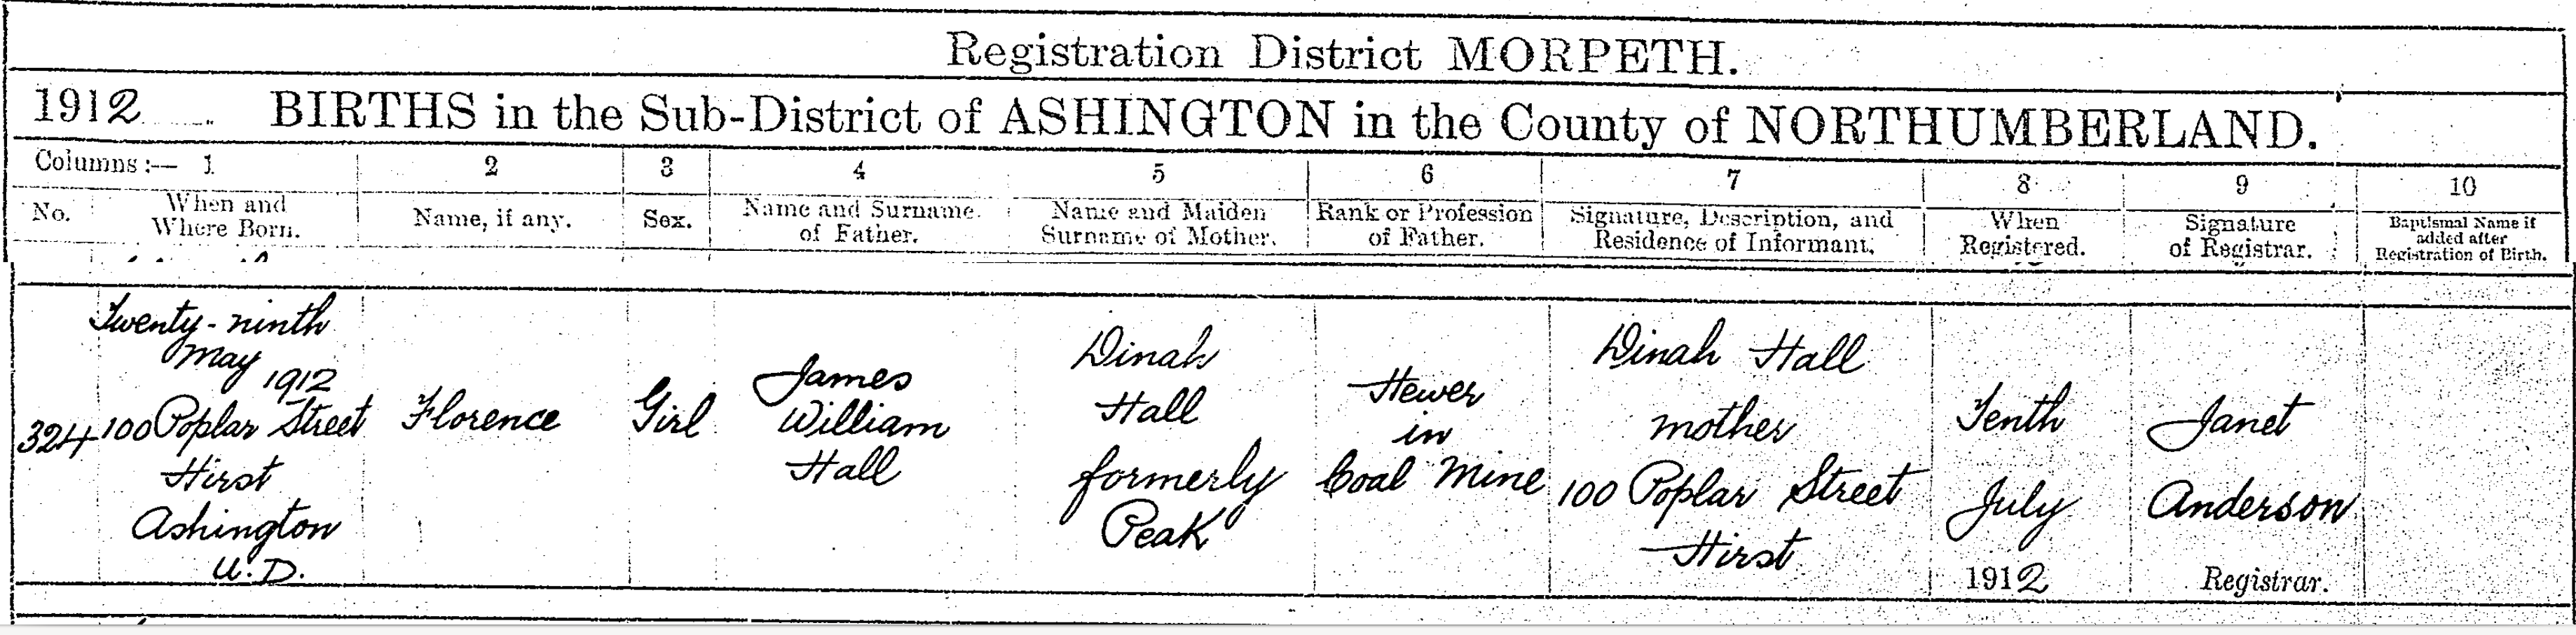 Registration District MORPETH.
1912 BIRTHS in the Sub-District of ASHINGTON in the County of NORTHUMBERLAND.
Columns :— 1 2 3 4 5 6 7 8 9 10
No.
When and
Where Born.
Name, if any.
Sex.
Name and Surname
of Father.
Name and Maiden
Surname of Mother.
Rank or Profession
of Father.
Signature, Description, and
Residence of Informant.
When
Registered.
Signature
of Registrar.
Baptismal Name if
added after
Registration of Birth.
324
Twenty-ninth
May
1912
100 Poplar Street
Hirst
Ashington
U.D.
Florence
Girl
James
William
Hall
Dinah
Hall
formerly
Peak
Hewer
in
Coal Mine
Dinah Hall
mother
100 Poplar Street
Hirst
Tenth
July
1912
Janet
Anderson
Registrar.